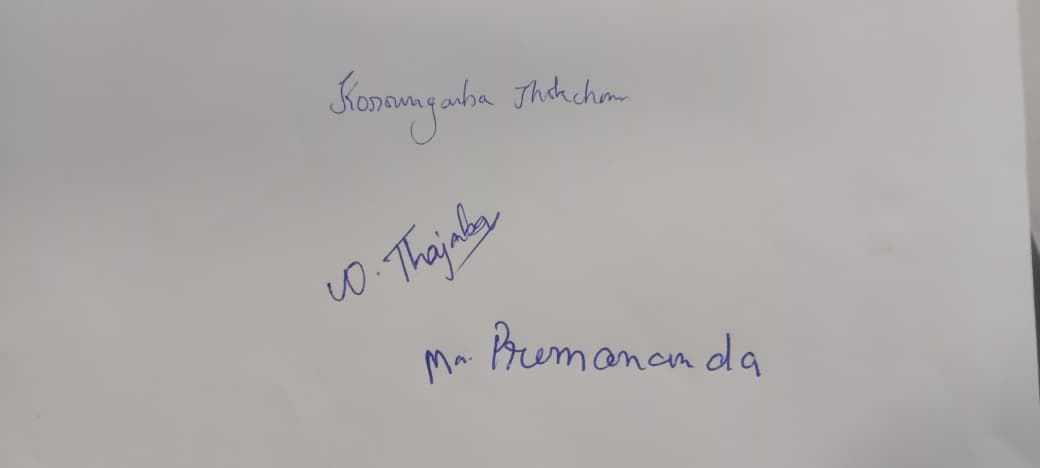 Korounganba Thokchom
W. Thajmba
Mn. Premananda